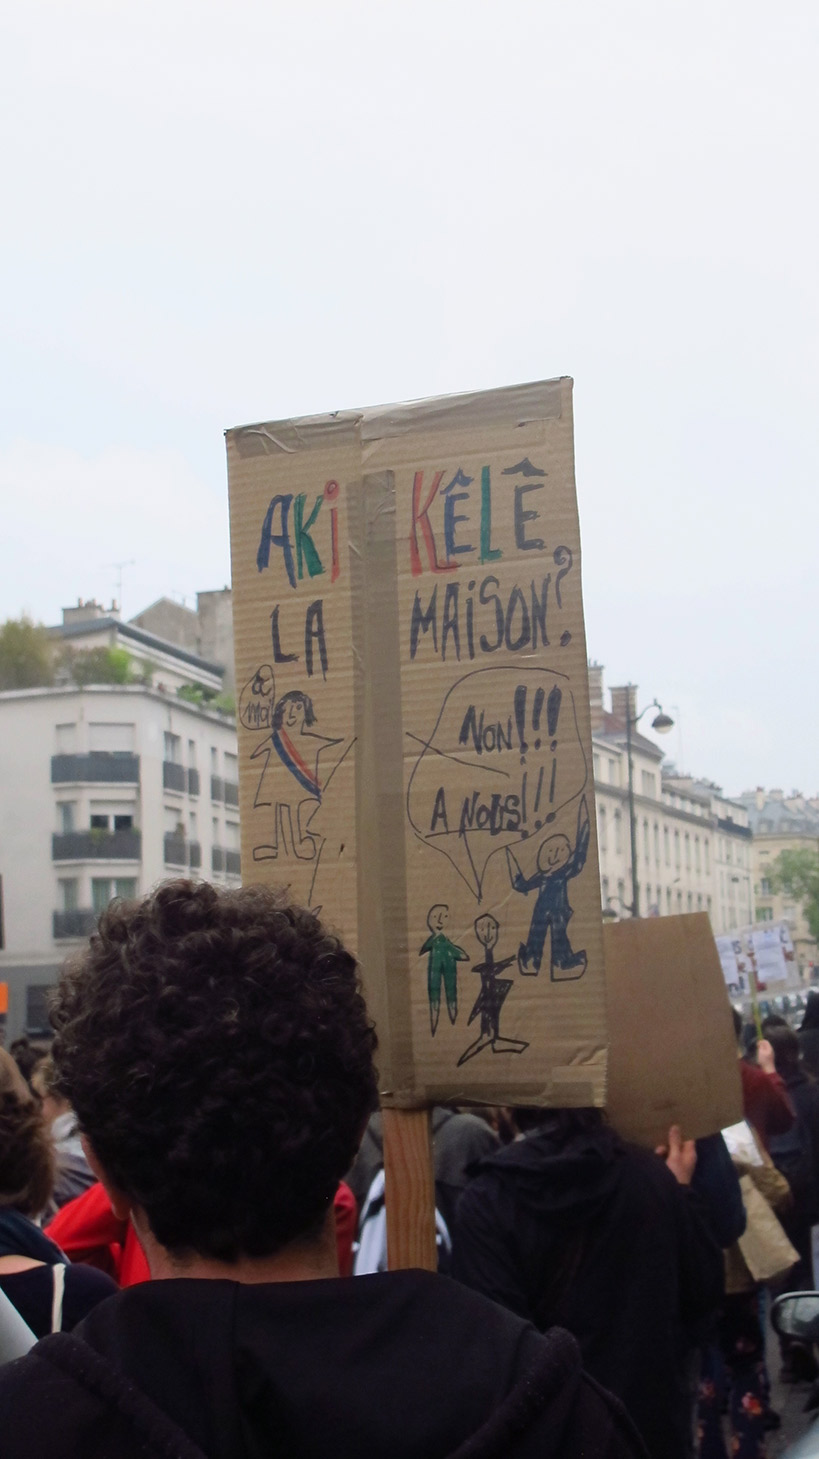 AKi KÊLÊ
LA MAiSON?
à
moi
NON!!!
A NOUS!!!